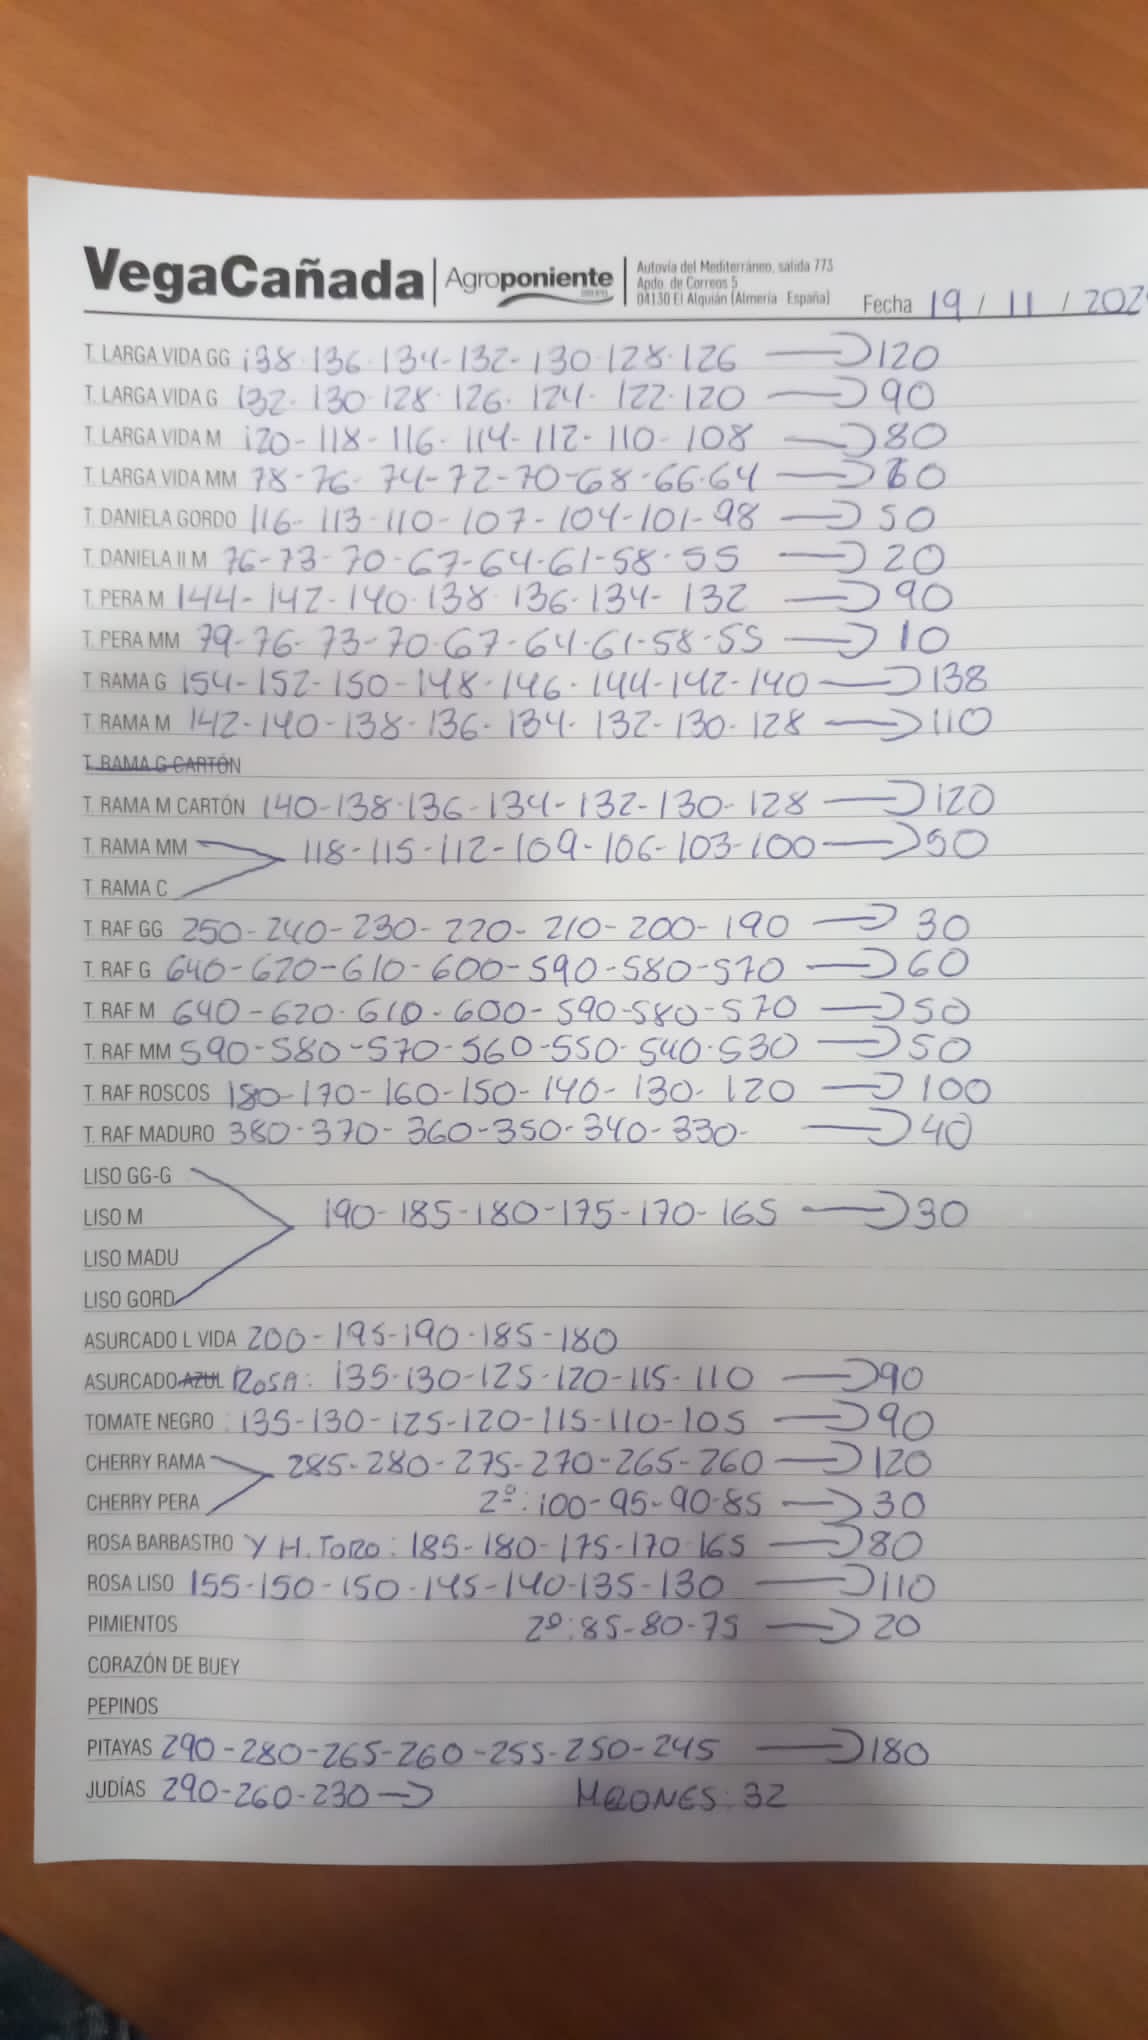 VegaCañada | Agroponiente | Autovía del Mediterráneo, salida 773
Apdo. de Correos 5
04130 El Alquián (Almería España) Fecha 19 / 11 / 202
T. LARGA VIDA GG 138-136-134-132-130-128-126 → 120
T. LARGA VIDA G 132-130-128-126-124-122-120 → 90
T. LARGA VIDA M 120-118-116-114-112-110-108 → 80
T. LARGA VIDA MM 78-76-74-72-70-68-66-64 → 60
T. DANIELA GORDO 116-113-110-107-104-101-98 → 50
T. DANIELA II M 76-73-70-67-64-61-58-55 → 20
T. PERA M 144-142-140-138-136-134-132 → 90
T. PERA MM 79-76-73-70-67-64-61-58-55 → 10
T. RAMA G 154-152-150-148-146-144-142-140 → 138
T. RAMA M 142-140-138-136-134-132-130-128 → 110
T. RAMA G CARTÓN
T. RAMA M CARTÓN 140-138-136-134-132-130-128 → 120
T. RAMA MM 118-115-112-109-106-103-100 → 50
T. RAMA C
T. RAF GG 250-240-230-220-210-200-190 → 30
T. RAF G 640-620-610-600-590-580-570 → 60
T. RAF M 640-620-610-600-590-580-570 → 50
T. RAF MM 590-580-570-560-550-540-530 → 50
T. RAF ROSCOS 180-170-160-150-140-130-120 → 100
T. RAF MADURO 380-370-360-350-340-330- → 40
LISO GG-G
LISO M 190-185-180-175-170-165 → 30
LISO MADU
LISO GORD
ASURCADO L VIDA 200-195-190-185-180
ASURCADO AZUL ROSA: 135-130-125-120-115-110 → 90
TOMATE NEGRO : 135-130-125-120-115-110-105 → 90
CHERRY RAMA 285-280-275-270-265-260 → 120
CHERRY PERA 2º: 100-95-90-85 → 30
ROSA BARBASTRO Y H. TORO: 185-180-175-170-165 → 80
ROSA LISO 155-150-150-145-140-135-130 → 110
PIMIENTOS 2º: 85-80-75 → 20
CORAZÓN DE BUEY
PEPINOS
PITAYAS 290-280-265-260-255-250-245 → 180
JUDÍAS 290-260-230 → MELONES: 32